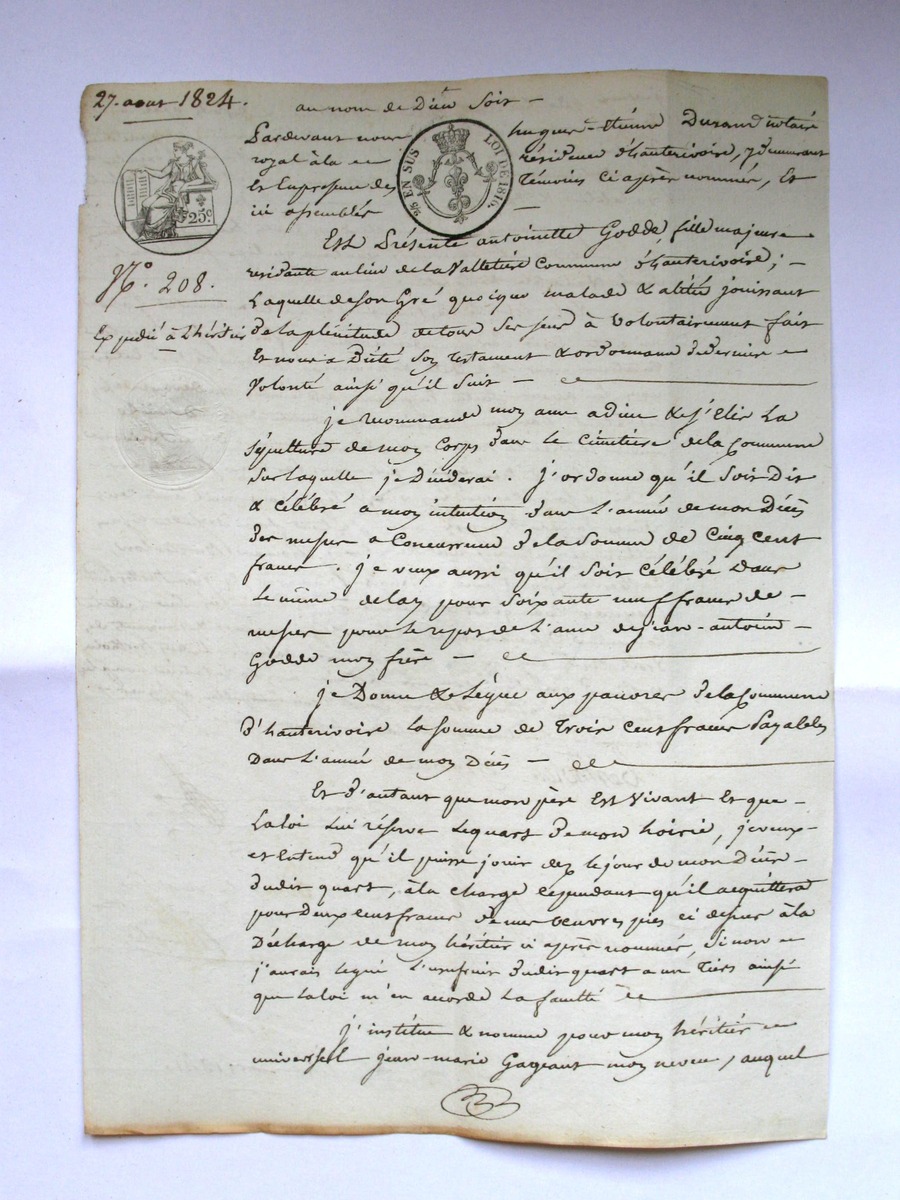 27. aout 1824.
au nom de Dieu soit
Pardevant nous hugues-étienne Durand notaire
royal à la résidence d'hauterivoire, y demeurant
Et En présence des Témoins ci après nommés, Et
ici assemblés
EN SUS LOI DE 1816.
25c
N° 208.
Expédié à L'héritier
Est Présente antoinette Godde, fille majeure
residante au lieu de la Valletière Commune d'hauterivoire;
Laquelle de son Gré quoique malade & alitée jouissant
de la plénitude de tous ses sens à volontairement fait
Et nous a Dicté son testament & ordonnance de dernière
volonté ainsi qu'il suit
je recommande mon ame a dieu & j'Elis La
sépulture de mon Corps dans le cimetière de la Commune
sur laquelle je Décéderai. J'ordonne qu'il soit Dit
& célébré a mon intention dans L'année de mon Décès
des messes a Concurrence de la somme de Cinq cent
francs. je veux aussi qu'il soit célébré dans
Le même délay pour soixante neuf francs de
messes pour le repos de L'ame de jean-antoine
Godde mon frère
je Donne & Lègue aux pauvres de la Commune
d'hauterivoire La somme de trois cents francs Payables
Dans L'année de mon Décès
Et d'autant que mon père Est Vivant Et que
La loi Lui réserve Le quart de mon hoirie, je veux
et Entend qu'il puisse jouir dez le jour de mon Décès
dudit quart, à la charge cependant qu'il acquittera
pour Deux cents francs de mes oeuvres pies ci dessus à la
Décharge de mon héritier ci après nommé, Si non
j'aurais legué L'usufruit dudit quart a un Tiers ainsi
que La loi m'en accorde La faculté
J'institue & nomme pour mon héritier
universel jean-marie Gageant mon neveu, auquel